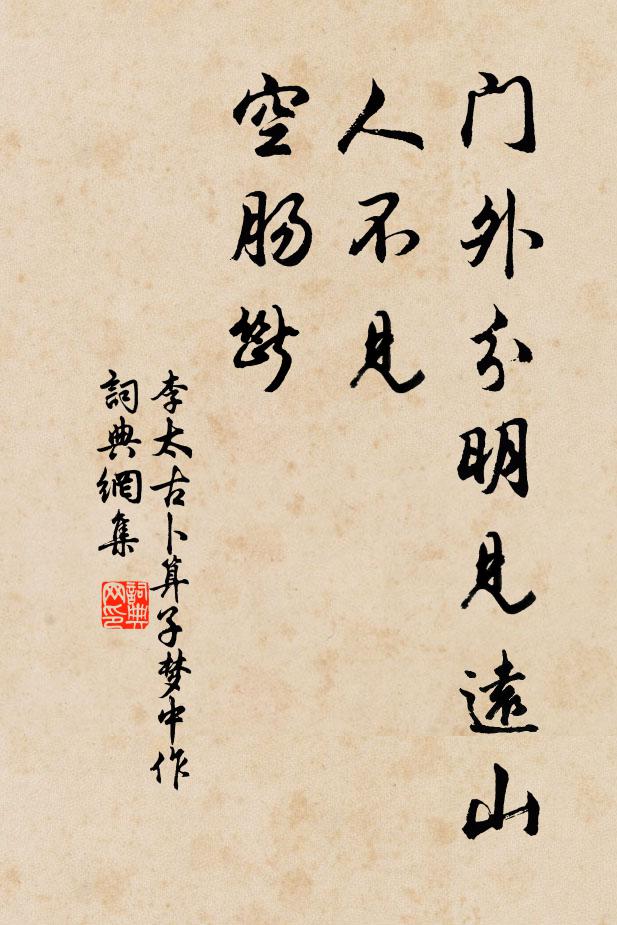 门外分明見遠山
人不見
空肠斷
李太古卜算子梦中作
詞典網集
詞典
网印